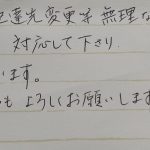 達先変更等無理な
対応して下さり
います。
も よろしくお願いします